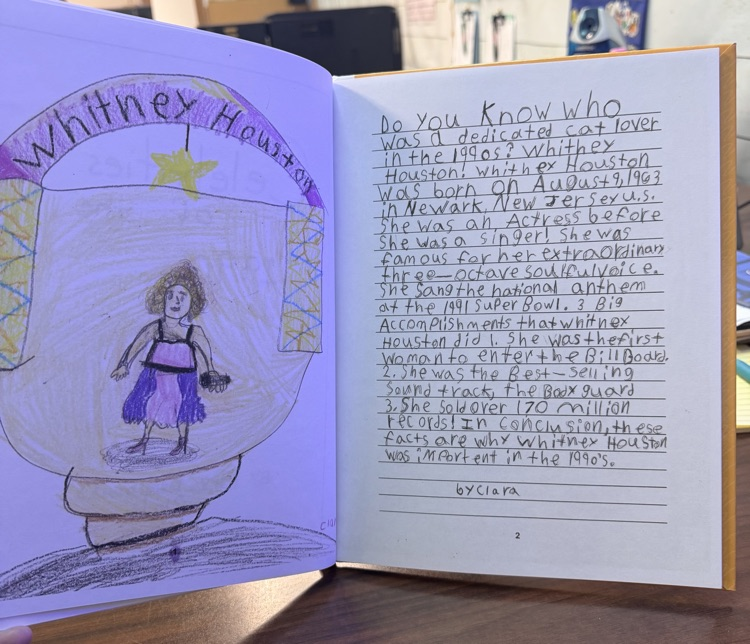 Whitney Houston
Do you Know who
was a dedicated cat lover
in the 1990s? Whitney
Houston! whitney Houston
was born on August 9, 1963
in Newark, New Jersey u.s.
She was an Actress before
she was a singer! She was
famous for her extraordinary
three-octave soulful voice.
She sang the national anthem
at the 1991 Super Bowl. 3 Big
Accomplishments that whitney
Houston did 1. She was the first
woman to enter the Bill Board.
2. She was the Best-selling
sound track, the Body guard
3. She sold over 170 million
records! In conclusion, these
facts are why whitney Houston
was importent in the 1990's.
by Clara
2